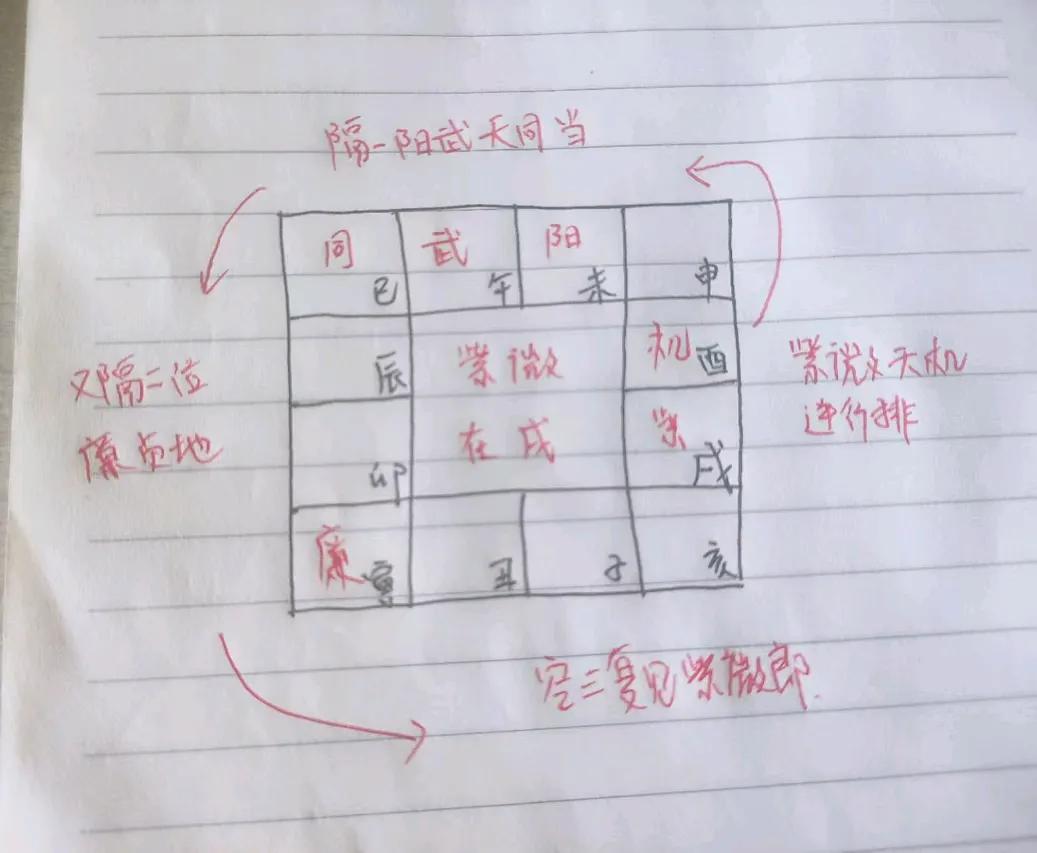 隔一阳武天同当
同 武 阳
巳 午 未 申
机 酉
辰
紫微
在戌
紫
戌
卯
廉 寅 丑 子 亥
又隔二位
廉贞地
紫微天机
逆行排
空三复见紫微郎